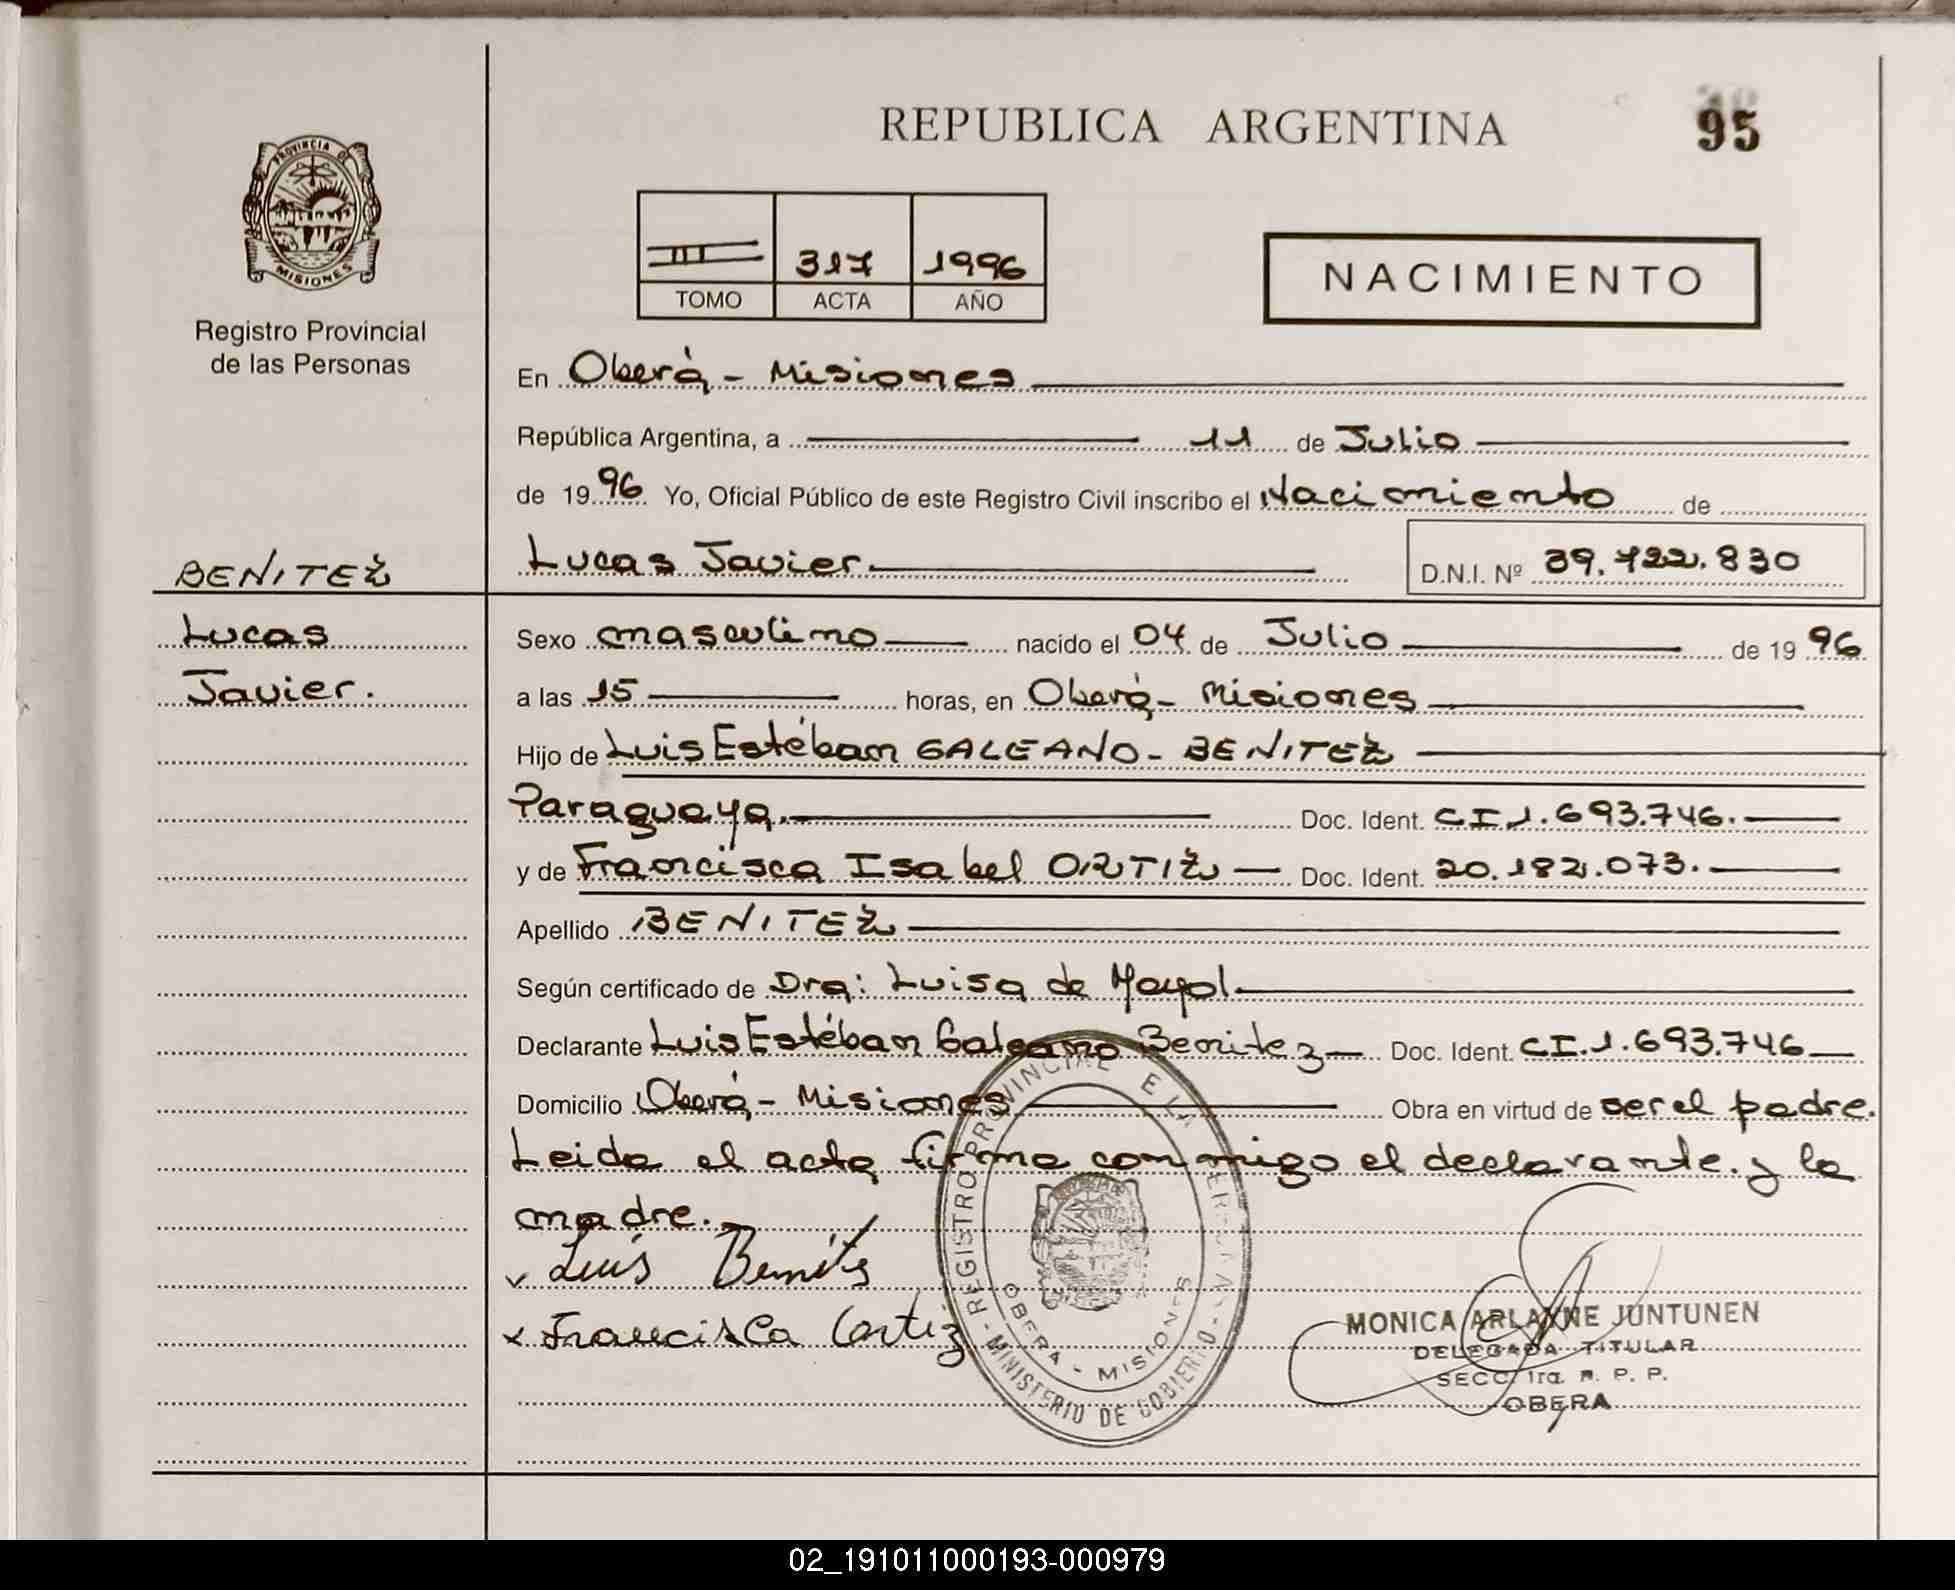 REPUBLICA ARGENTINA
95
PROVINCIA DE
MISIONES
Registro Provincial
de las Personas
III 317 1996
TOMO ACTA AÑO
NACIMIENTO
En Oberá - Misiones
República Argentina, a 11 de Julio
de 1996 Yo, Oficial Público de este Registro Civil inscribo el Nacimiento de
Lucas Javier D.N.I. Nº 39.722.830
BENITEZ
Lucas
Javier.
Sexo masculino nacido el 04 de Julio de 1996
a las 15 horas, en Oberá - Misiones
Hijo de Luis Estéban GALEANO - BENITEZ
Paraguaya. Doc. Ident. CI 1.693.746.
y de Francisca Isabel ORTIZ Doc. Ident. 20.182.073.
Apellido BENITEZ
Según certificado de Dra: Luisa de Mayol
Declarante Luis Estéban Galeano Benitez Doc. Ident. CI.1.693.746
Domicilio Oberá - Misiones Obra en virtud de ser el padre.
Leida el acta firma conmigo el declarante. y la
madre.
Luis Benitez
x Francisca Ortiz
REGISTRO PROVINCIAL DE LAS PERSONAS - MINISTERIO DE GOBIERNO -
OBERA - MISIONES
MONICA ARLAYNE JUNTUNEN
DELEGADA TITULAR
SECC. 1ra. R. P. P.
OBERA
02_191011000193-000979